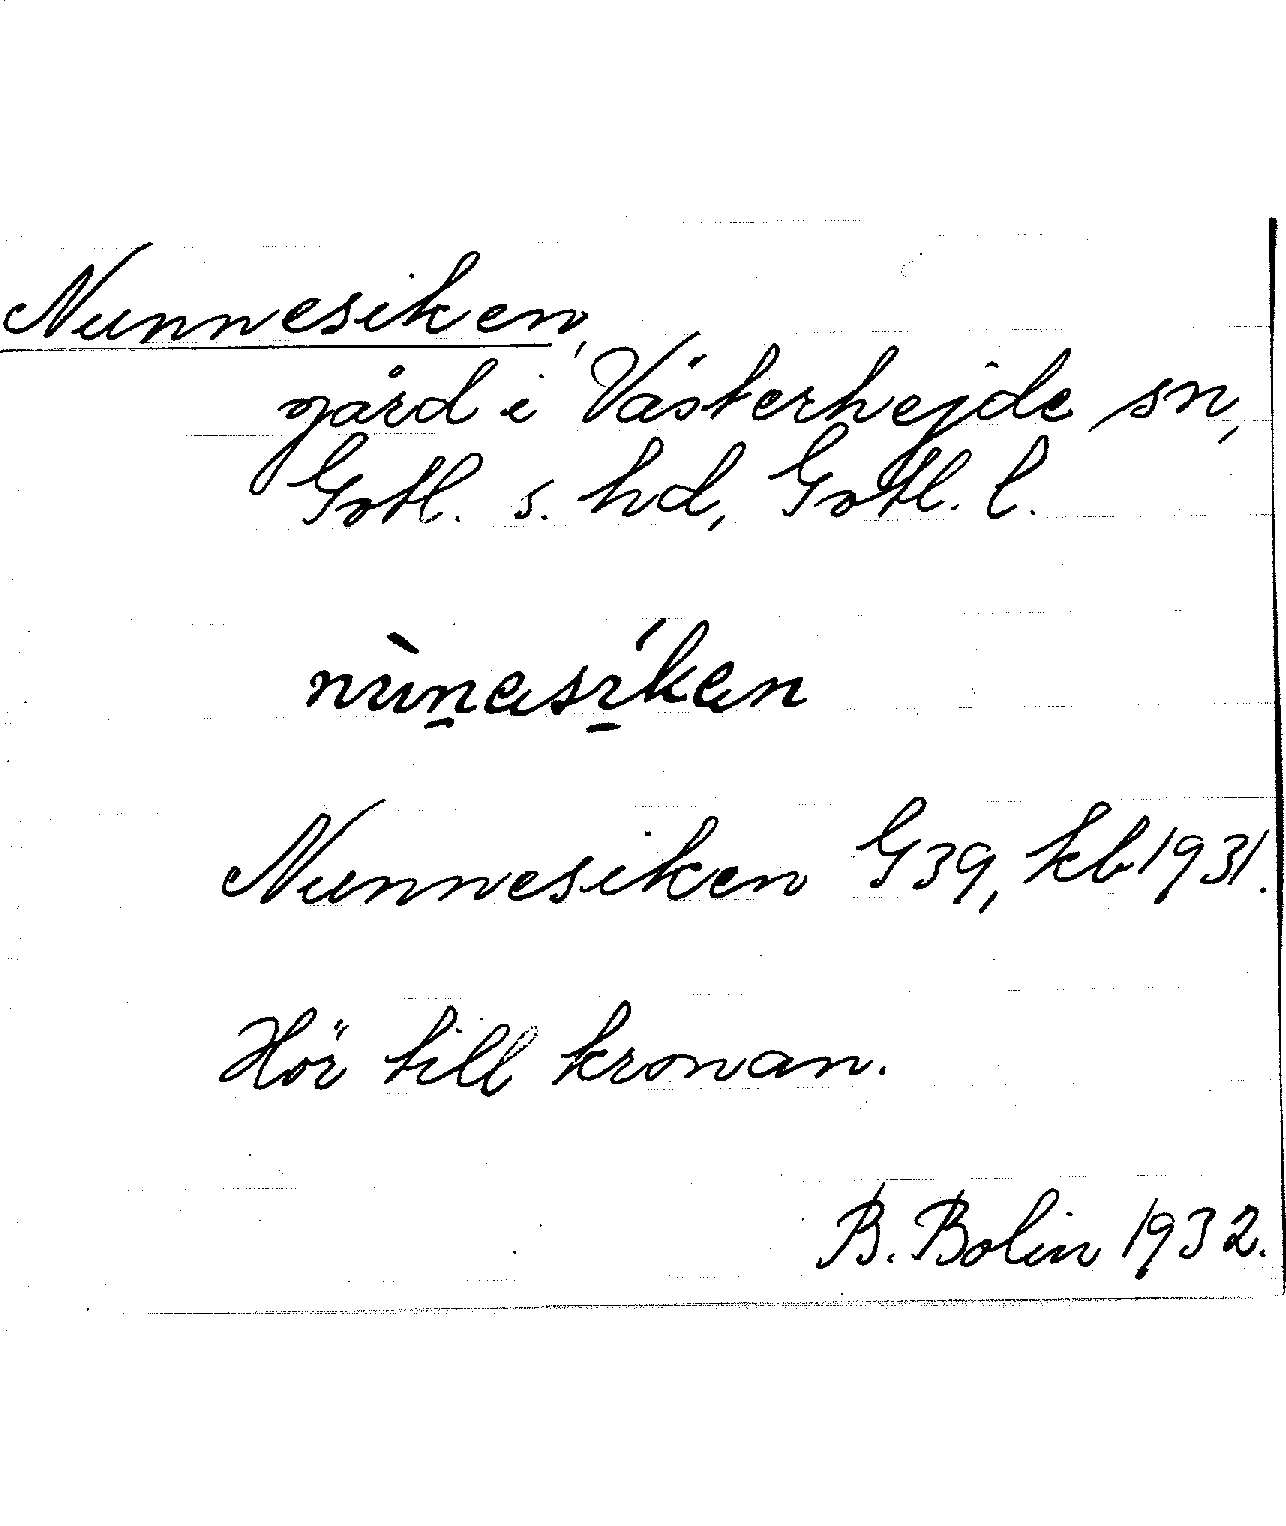 Nunnesiken,
gård i Västerhejde sn,
Gotl. s. hd, Gotl. l.
nùn̲esí̲ken
Nunnesiken G39, kb 1931.
Hör till kronan.
B. Bolin 1932.